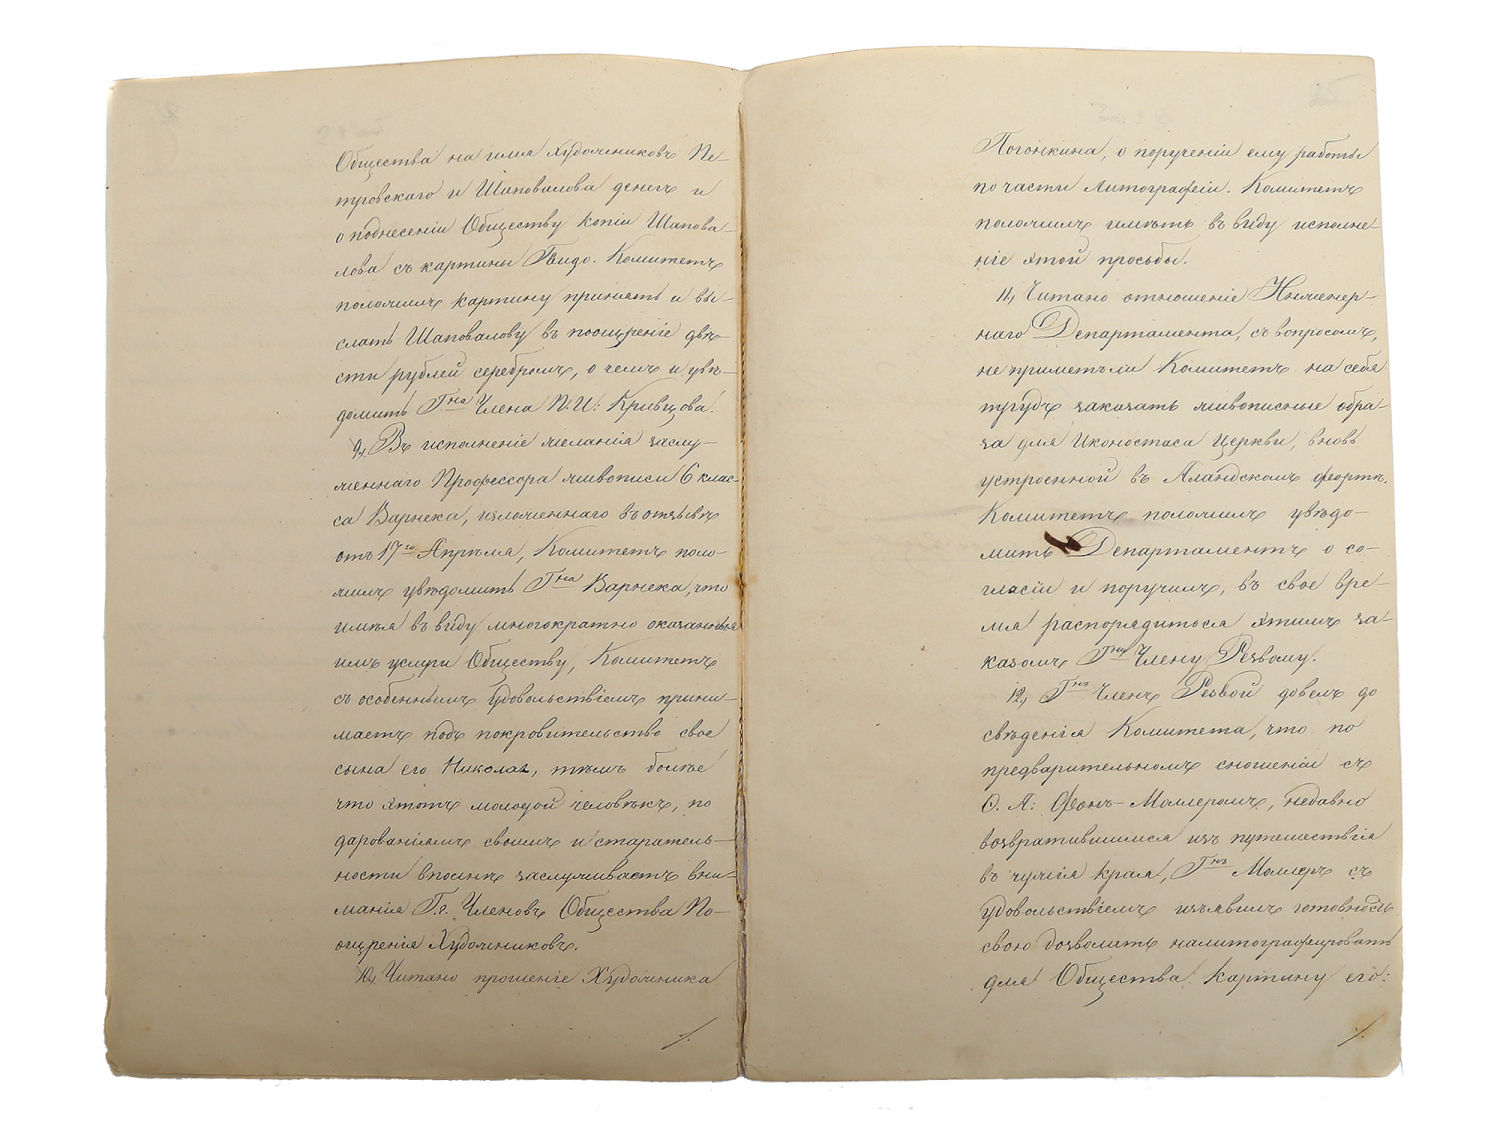 Общества на имя Художниковъ Пе-
тровскаго и Шаповалова денегъ и
о поднесеніи Обществу копіи Шапова-
лова съ картины Гвидо. Комитетъ
положилъ картину принять и вы-
слать Шаповалову въ поощреніе двѣ-
сти рублей серебромъ, о чемъ и увѣ-
домить Гна Члена П. И: Кривцова.
9, Въ исполненіе желанія заслу-
женнаго Профессора живописи 6 клас-
са Варнека, изложеннаго въ отзывѣ
отъ 17го Апрѣля, Комитетъ поло-
жилъ увѣдомить Гна Варнека, что
имѣя въ виду многократно оказанныя
имъ услуги Обществу, Комитетъ
съ особеннымъ удовольствіемъ прини-
маетъ подъ покровительство свое
сына его Николая, тѣмъ болѣе
что этотъ молодой человѣкъ, по
дарованіямъ своимъ и старатель-
ности вполнѣ заслуживаетъ вни-
манія Гг. Членовъ Общества По-
ощренія Художниковъ.
10, Читано прошеніе Художника
Погонкина, о порученіи ему работы
по части Литографіи. Комитетъ
положилъ имѣть въ виду исполне-
ніе этой просьбы.
11, Читано отношеніе Инженер-
наго Департамента, съ вопросомъ,
не приметъ ли Комитетъ на себя
трудъ заказать живописные обра-
за для Иконостаса Церкви, вновь
устроенной въ Аландскомъ фортѣ.
Комитетъ положилъ увѣдо-
мить Департаментъ о со-
гласіи и поручилъ, въ свое вре-
мя распорядиться этимъ за-
казомъ Гну Члену Резвому.
12, Гнъ Членъ Резвой довелъ до
свѣденія Комитета, что по
предварительномъ сношеніи съ
Ѳ. А: Фонъ-Моллеромъ, недавно
возвратившимся изъ путешествія
въ чужія края, Гнъ Моллеръ съ
удовольствіемъ изъявилъ готовность
свою дозволить налитографировать
для Общества картину его: